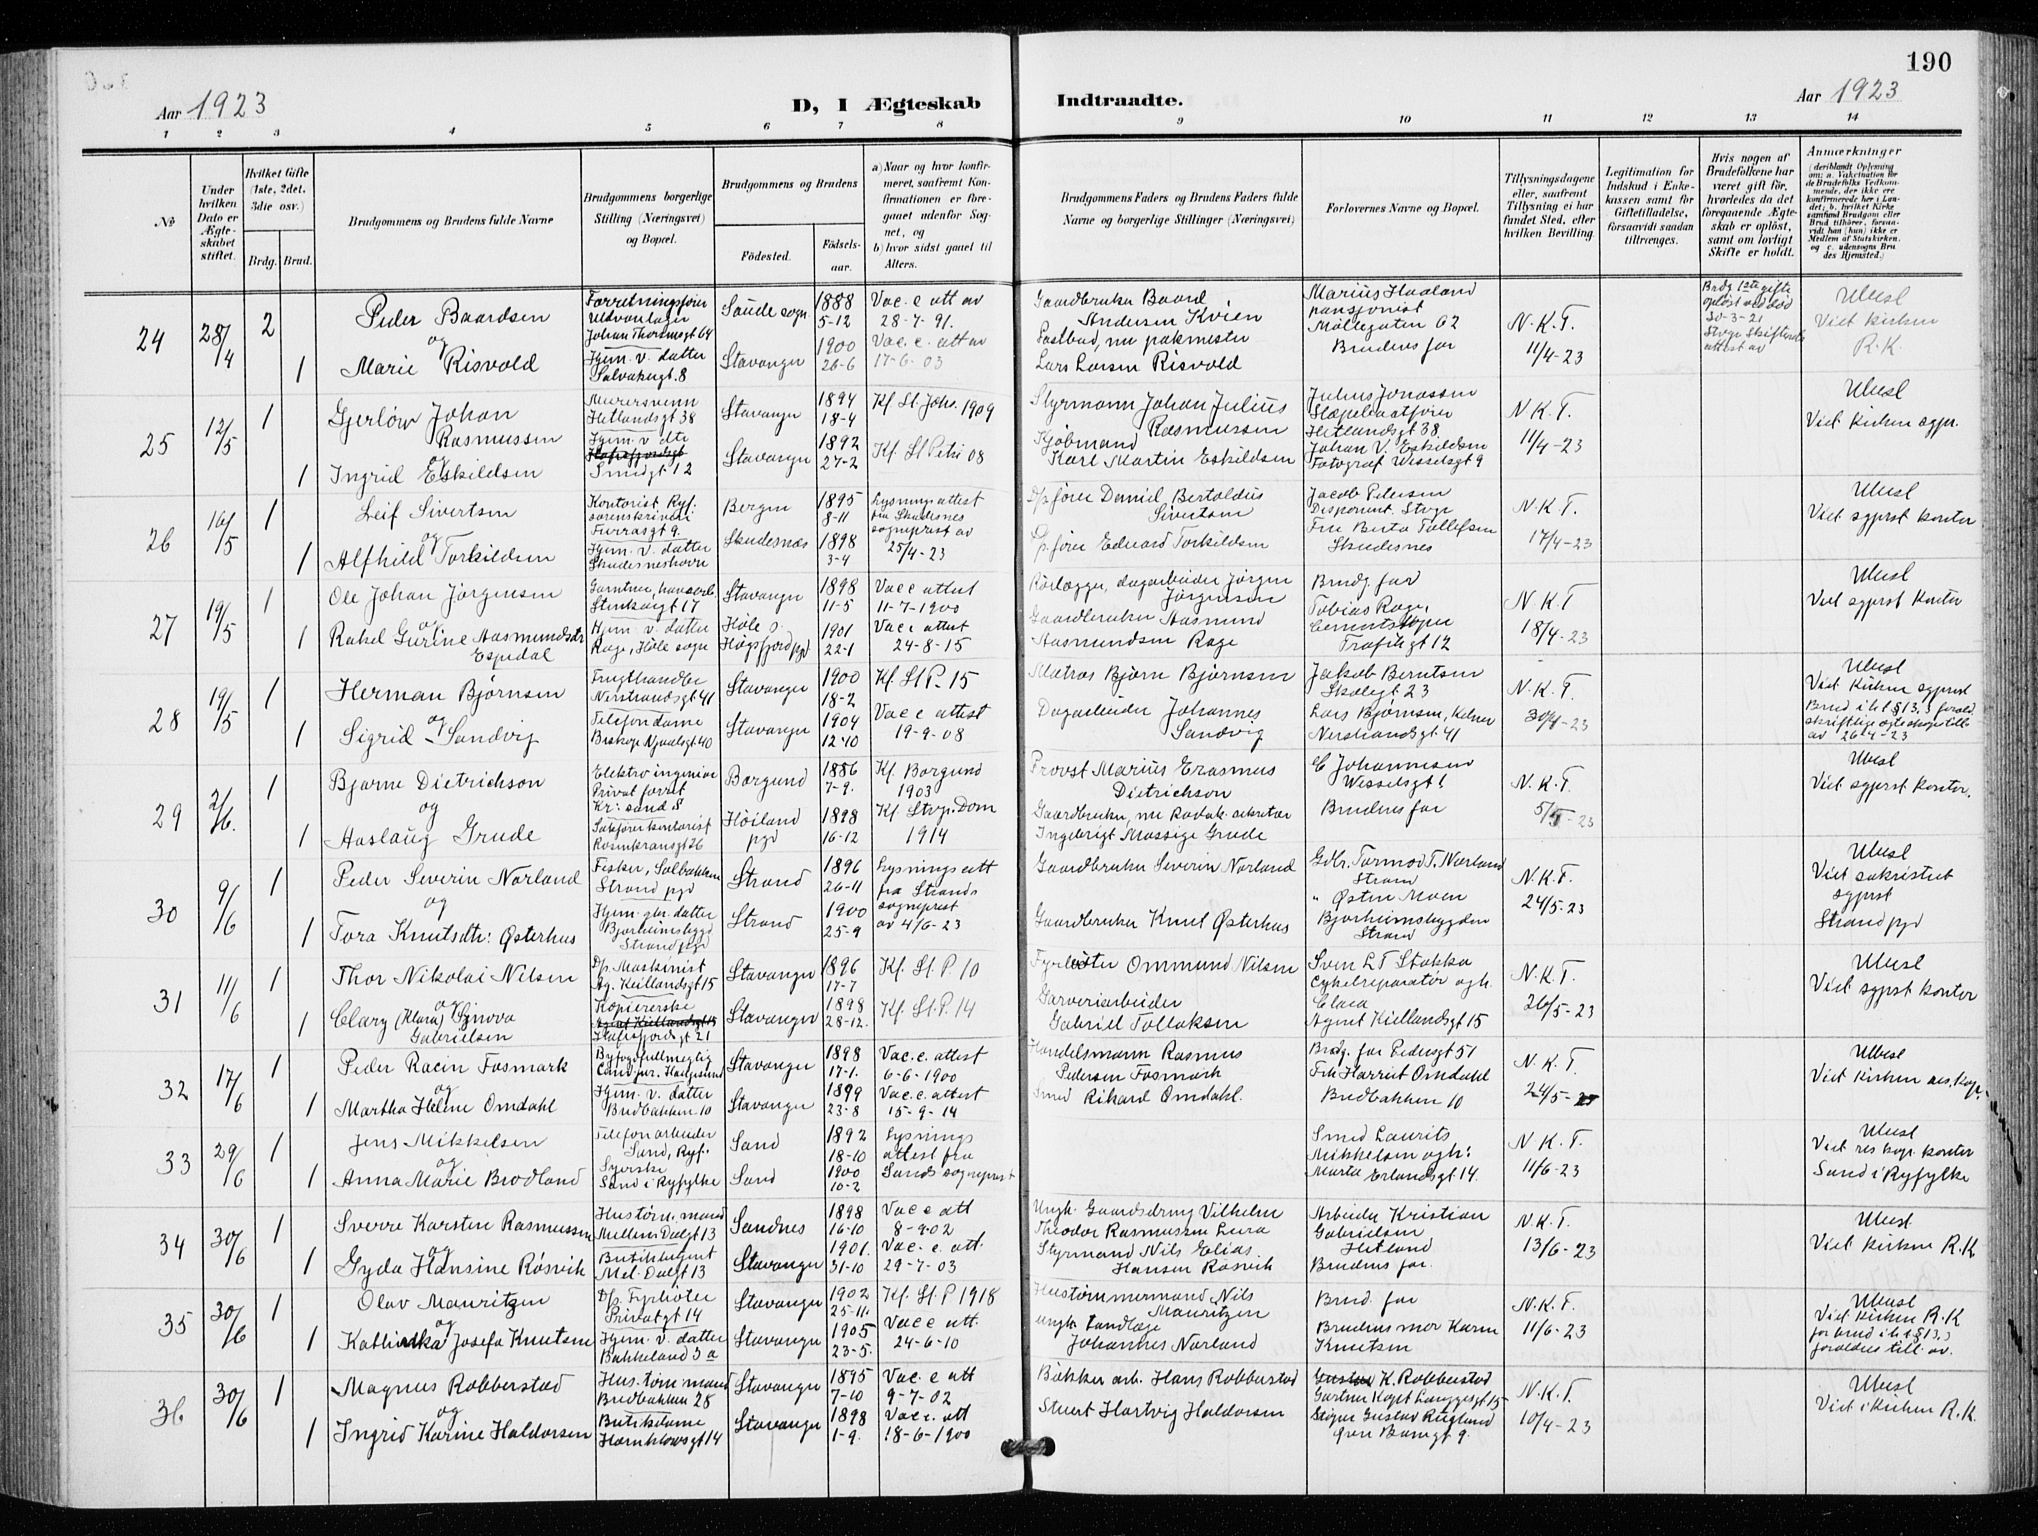 190
Aar 1923
D, I Ægteskab Indtraadte.
Aar 1923
1 2 3 4 5 6 7 8 9 10 11 12 13 14
No
Under hvilken Dato er Ægteskabet stiftet.
Hvilket Gifte (1ste, 2det, 3die osv.)
Brdg. Brud.
Brudgommens og Brudens fulde Navne
Brudgommens borgerlige Stilling (Næringsvei) og Bopæl.
Brudgommens og Brudens
Födested.
Födselsaar.
a) Naar og hvor konfirmeret, saafremt Konfirmationen er foregaaet udenfor Sognet, og
b) hvor sidst gaaet til Alters.
Brudgommens Faders og Brudens Faders fulde Navne og borgerlige Stillinger (Næringsvei)
Forlovernes Navne og Bopæl.
Tillysningsdagene eller, saafremt Tillysning ei har fundet Sted, efter hvilken Bevilling.
Legitimation for Indskud i Enkekassen samt for Giftetilladelse, forsaavidt saadan tiltrænges.
Hvis nogen af Brudefolkene har været gift för, hvorledes da det foregaaende Ægteskab er oplöst, samt om lovligt Skifte er holdt.
Anmærkninger
24 28/4 2
Peder Baardsen
og
1 Marie Risvold
Johan Thorsensgt 64
Hjem. v. datter
Saude sogn 1888 5-12
Stavanger 1900 26-6
Vac. e att av 28-7-91.
Vac. e. att av 17-6-03
Gaardbruker Baard Andersen Kvien
Lars Larsen Risvold
Marius Haaland
pansfonist
Møllegaten 62
Brudens far
N.K.T. 11/4-23
Brdg 1ste gifte opløst ved død 30-3-21
Ubesl
Viet kirken R.K.
25 12/5 1
Gjerløw Johan Rasmussen
og
1 Ingrid Eskildsen
Murersvenn
Hetlandsgt 38
Hjem. v. dtr
Smedgt 12
Stavanger 1894 18-4
Stavanger 1892 27-2
Kf. St. Johs. 1909
Kf. St Petri 08
Styrmann Johan Julius Rasmussen
Kjøbmand Karl Martin Eskildsen
Julius Jonassen
Hetlandsgt 38
Johan V. Eskildsen
Fotograf Wesselsgt 9
N.K.T. 11/4-23
Ubesl
Viet kirken sgpr.
26 16/5 1
Leif Sivertsen
og
1 Alfhild Torkildsen
Kontorist Ryf.
sorenskriveri
Hjem. v. datter
Skudesneshavn
Bergen 1895 8-11
Skudesnes 1898 3-4
Lysningsattest fra Skudesnes sogneprest av 25/4-23
D/p. fører Daniel Bertoldus Sivertsen
D/p. fører Edvard Torkildsen
Jacob Petersen
Disponent. Stvgr
Fru Berta Tollefsen
Skudesnes
N.K.T. 17/4-23
Ubesl
Viet sgprst kontor
27 19/5 1
Ole Johan Jörgensen
og
1 Rakel Gurine Aasmundsdtr Espedal
Stenkargt 17
Hjem. v. datter
Rage, Höle sogn
Stavanger 1898 11-5
Høle s. Høgsfjord pgd 1901 22-1
Vac e attest 11-7-1900
Vac e attest 24-8-15
Rörlægger, dagarbeider Jörgen Jörgensen
Gaardbruker Aasmund Aasmundsen Rage
Brudg. far
Tobias Rage,
Cementstøper
N.K.T 18/4-23
Ubesl
Viet sgprst kontor
28 19/5 1
Herman Bjørnsen
og
1 Sigrid Sandvig
Frugthandler
Nerstrandsgt 41
Telefondame
Biskop Njaalsgt 40
Stavanger 1900 18-2
Stavanger 1904 12-10
Kf. St P. 15
Vac e attest 19-9-08
Matros Bjørn Bjørnsen
Dagarbeider Johannes Sandvig
Jakob Berntsen
Skolegt 23
Lars Bjørnsen, Kelner
Nerstrandsgt 41
N.K.T. 30/4-23
Ubesl
Viet Kirken sgprst
Brud i h t § 13,3 foræld
av 26-4-23
29 2/6. 1
Bjarne Dietrichson
og
1 Aaslaug Grude
Elektro ingeniør
Privat forret
Kr: sand S
Sakförerkontorist
Rosenkransgt 26
Borgund 1886 7-9.
Höiland pgd 1898 16-12
Kf. Borgund 1903
Kf. Stvgr. Dom 1914
Provst Marius Erasmus Dietrichson
Ingebrigt Massige Grude
C Johannesen
Wesselsgt
Brudens far
N.K.T. 5/5-23
Ubesl
Viet sgprst kontor.
30 9/6 1
Peder Severin Norland
og
1 Tora Knutsdtr: Østerhus
Fisker, Solbakken
Strand pgd
Hjem. gbr. datter
Bjørheimsbygd
Strand pgd
Strand 1896 26-11
Strand 1900 25-9
Lysningsatt fra Strands sogneprest av 4/6-23
Gaardbruker Severin Norland
Gaardbruker Knut Østerhus
Gdbr. Tormod T. Norland
Strand
" Østen Moen
Bjørheimsbygden
Strand
N.K.T. 24/5-23
Ubesl
Viet sakristiet
sgprst
Strand pgd
31 11/6 1
Thor Nikolai Nilsen
og
1 Clary (Klara) Synova Gabrielsen
D/p. Maskinist
Ag. Kiellandsgt 15
Kopiererske
Hafrsfjordsgt 21
Stavanger 1896 17-7
Stavanger 1898 28-12.
Kf. St. P. 10
Kf. St. P. 14
Fyrbøter Ommund Nilsen
Garveriarbeider
Gabriel Tollaksen
Sven L T Stokka
Cykelreparatør og h.
Clara
Agnet Kiellandsgt 15
N.K.T. 26/5-23
Ubesl
Viet sgprst kontor
32 17/6 1
Peder Racin Fosmark
og
1 Martha Helene Omdahl
Byfogdfullmegtig
Cand. jur. Haugesund
Hjem. v. datter
Bredbakken 10
Stavanger 1898 17-1.
Stavanger 1899 23-8
Vac. e. attest 6-6-1900
Vac. e. attest 15-9-14
Handelsmann Rasmus Pedersen Fosmark
Smed Rikard Omdahl.
Brdg. far Pedersgt 51
Frk Harriet Omdahl
Bredbakken 10
N.K.T. 24/5-23
Ubesl
Viet kirken res. kap.
33 29/6 1
Jens Mikkelsen
og
1 Anna Marie Brodland
Telefonarbeider
Sand, Ryf.
Syerske
Sand i Ryfylke
Sand 1892 18-10
Sand 1900 10-2
Lysnings attest fra Sands sogneprest
Smed Laurits
Mikkelsen og h:
Marta Erlandsgt 14.
N K.T. 11/6-23
Ubesl
Viet res kap. kontor
Sand i Ryfylke
34 30/6 1
Sverre Karsten Rasmussen
og
1 Gyda Hansine Røsvik
Hustøm. mand
Mellem Dalgt 13
Mel. Dalgt 13
Sandnes 1898 16-10
Stavanger 1901. 31-10
Vac e att 8-9-02
Vac. e. att. 29-7-03
Ungk. Gaardsdreng Vilhelm Theodor Rasmussen Lura
Styrmand Nils Elias Hansen Røsvik
Arbeider Kristian
Gabrielsen
Hetland
Brudens far.
N.K.T. 13/6-23
Ubesl
Viet kirken R.K
35 30/6 1
Olav Mauritzen
og
1 Kathinka Josefa Knutsen
D/p. Fyrbøter
Privatgt 14
Hjem. v. datter
Bakkeland 3 a
Stavanger 1902 25-11.
Stavanger 1905 23-5.
Kf. St. P 1918
Vac e att. 24-6-10
Hustømmermand Nils Mauritzen
ungk. tandlæge
Johannes Norland
Brud. far
Brudens mor Karen
Knutsen
N.K.T. 11/6-23
Ubesl
Viet kirken R.K
for brud i h t § 13,3
forældres till. av.
36 30/6 1
Magnus Robberstad
og
1 Ingrid Karine Haldorsen
Hus. tøm. mand
Bredbakken 28
Butikdame
Hornklovsgt 14
Stavanger 1895 7-10
Stavanger 1898 1-9.
Vac. e att 9-7-02
Vac e. att 18-6-1900
Bökker arb. Hans Robberstad
Stuert Hartvig Haldorsen
K. Robberstad
Støper Gustav Rugland
N.K.T. 10/4-23
Ubesl
Viet i kirken R.K.